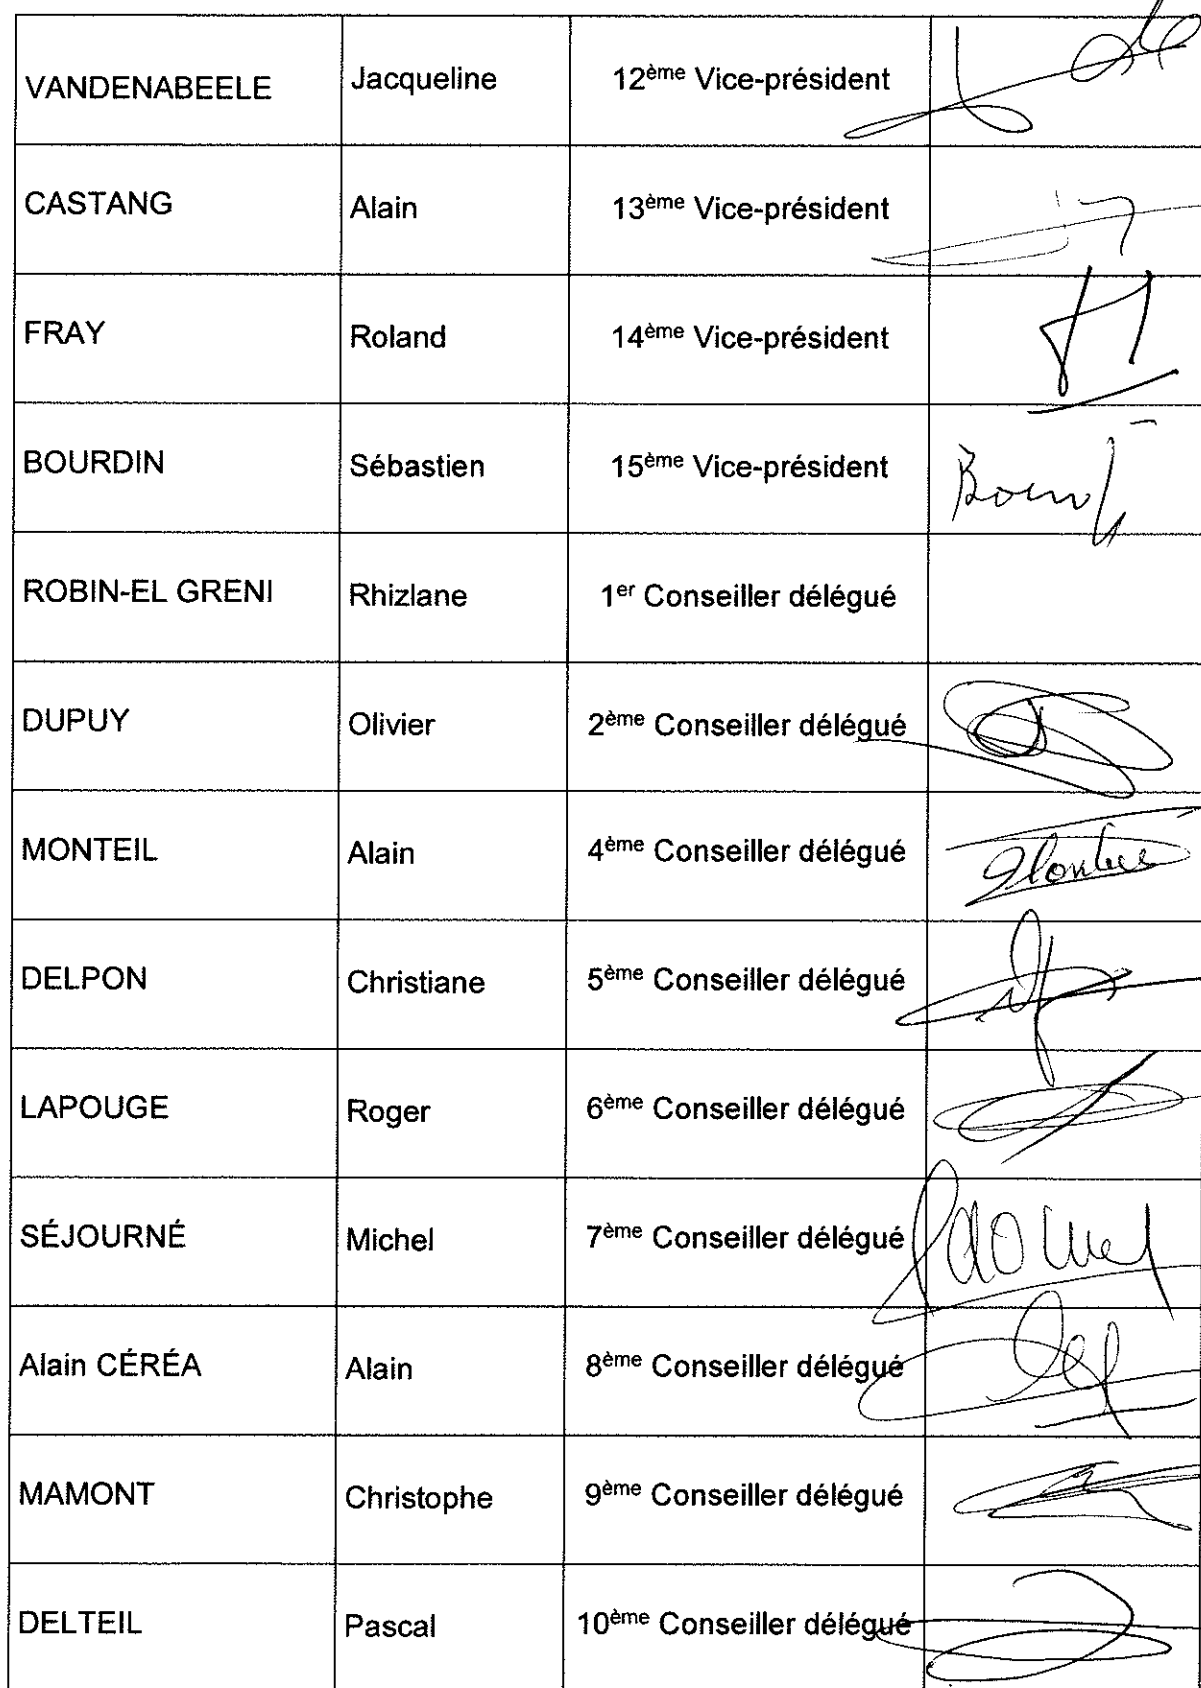 VANDENABEELE Jacqueline 12ème Vice-président
CASTANG Alain 13ème Vice-président
FRAY Roland 14ème Vice-président
BOURDIN Sébastien 15ème Vice-président
ROBIN-EL GRENI Rhizlane 1er Conseiller délégué
DUPUY Olivier 2ème Conseiller délégué
MONTEIL Alain 4ème Conseiller délégué
DELPON Christiane 5ème Conseiller délégué
LAPOUGE Roger 6ème Conseiller délégué
SÉJOURNÉ Michel 7ème Conseiller délégué
Alain CÉRÉA Alain 8ème Conseiller délégué
MAMONT Christophe 9ème Conseiller délégué
DELTEIL Pascal 10ème Conseiller délégué